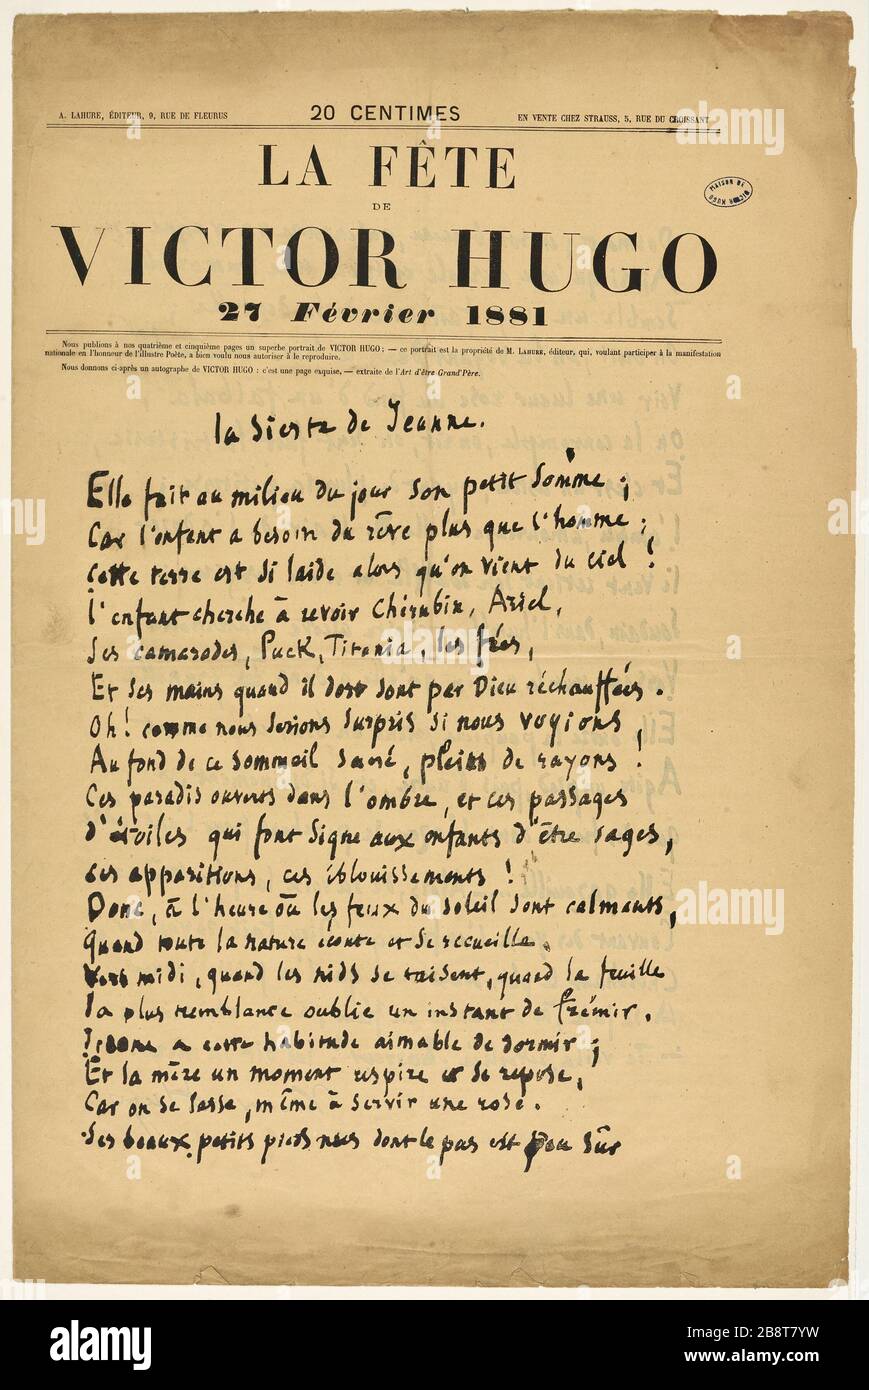 A. LAHURE, ÉDITEUR, 9, RUE DE FLEURUS
20 CENTIMES
EN VENTE CHEZ STRAUSS, 5, RUE DU CROISSANT
LA FÊTE
DE
VICTOR HUGO
27 Février 1881
MAISON DE VICTOR HUGO
Nous publions à nos quatrième et cinquième pages un superbe portrait de VICTOR HUGO; — ce portrait est la propriété de M. LAHURE, éditeur, qui, voulant participer à la manifestation
nationale en l'honneur de l'illustre Poète, a bien voulu nous autoriser à le reproduire.
Nous donnons ci-après un autographe de VICTOR HUGO : c'est une page exquise, — extraite de l'Art d'être Grand'Père.
la sieste de Jeanne.
Elle fait au milieu du jour son petit somme ;
Car l'enfant a besoin du rêve plus que l'homme ;
Cette terre est si laide alors qu'on vient du ciel !
L'enfant cherche à revoir Chérubin, Ariel,
Ses camarades, Puck, Titania, les fées,
Et ses mains quand il dort sont par Dieu réchauffées.
Oh ! comme nous serions surpris si nous voyions,
Au fond de ce sommeil sacré, plein de rayons !
Ces paradis ouverts dans l'ombre, et ces passages
d'étoiles qui font signe aux enfants d'être sages,
ces apparitions, ces éblouissements !
Donc, à l'heure où les feux du soleil sont calmants,
Quand toute la nature écoute et se recueille,
Vers midi, quand les nids se taisent, quand la feuille
la plus tremblante oublie un instant de frémir,
Jeanne a cette habitude aimable de dormir ;
Et la mère un moment respire et se repose,
Car on se lasse, même à servir une rose.
Ses beaux petits pieds nus dont le pas est peu sûr
alamy
Image ID: 2B8T7YW
www.alamy.com